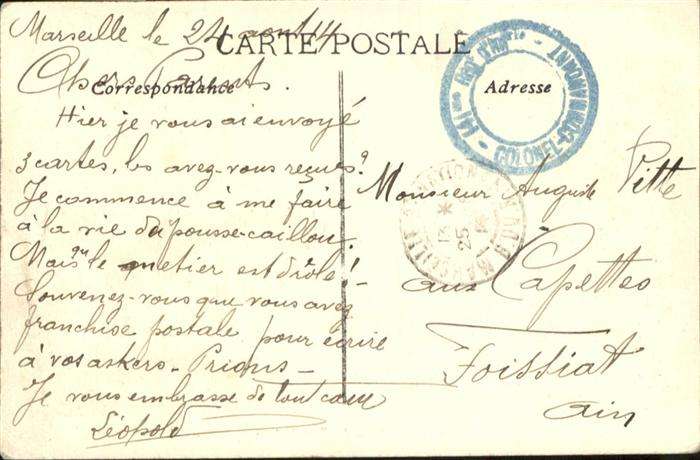 Marseille le 24 août 14
CARTE POSTALE
Chers Parents.
Correspondance
Hier je vous ai envoyé
3 cartes, les avez-vous reçues?
Je commence à me faire
à la vie du pousse-caillou.
Mais que le metier est drôle!
Souvenez-vous que vous avez
franchise postale pour écrire
à vos askers. Prions
Je vous embrasse de tout cœur
Léopold
Adresse
141 Régt d'Infrie - LT COLONEL-COMMANDANT
MARSEILLE
25
14
Monsieur Auguste Pitte
aux Capettes
Foissiat
Ain